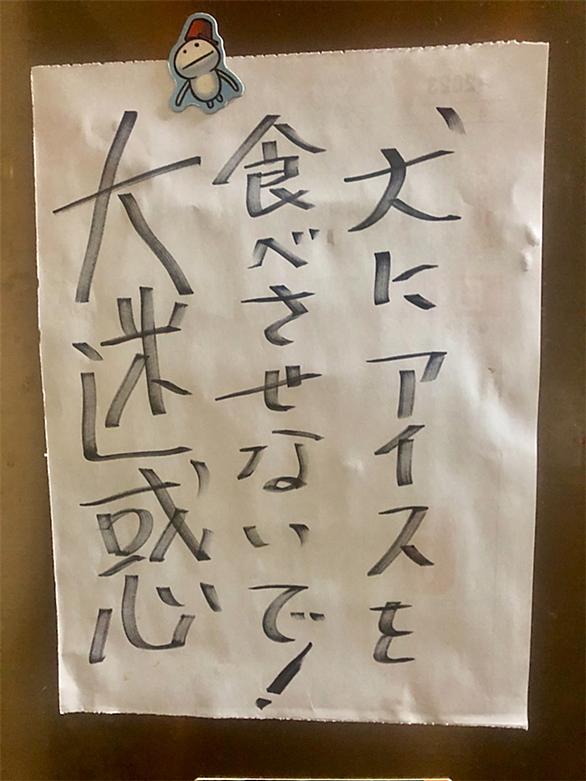 犬にアイスを
食べさせないで!
大迷惑